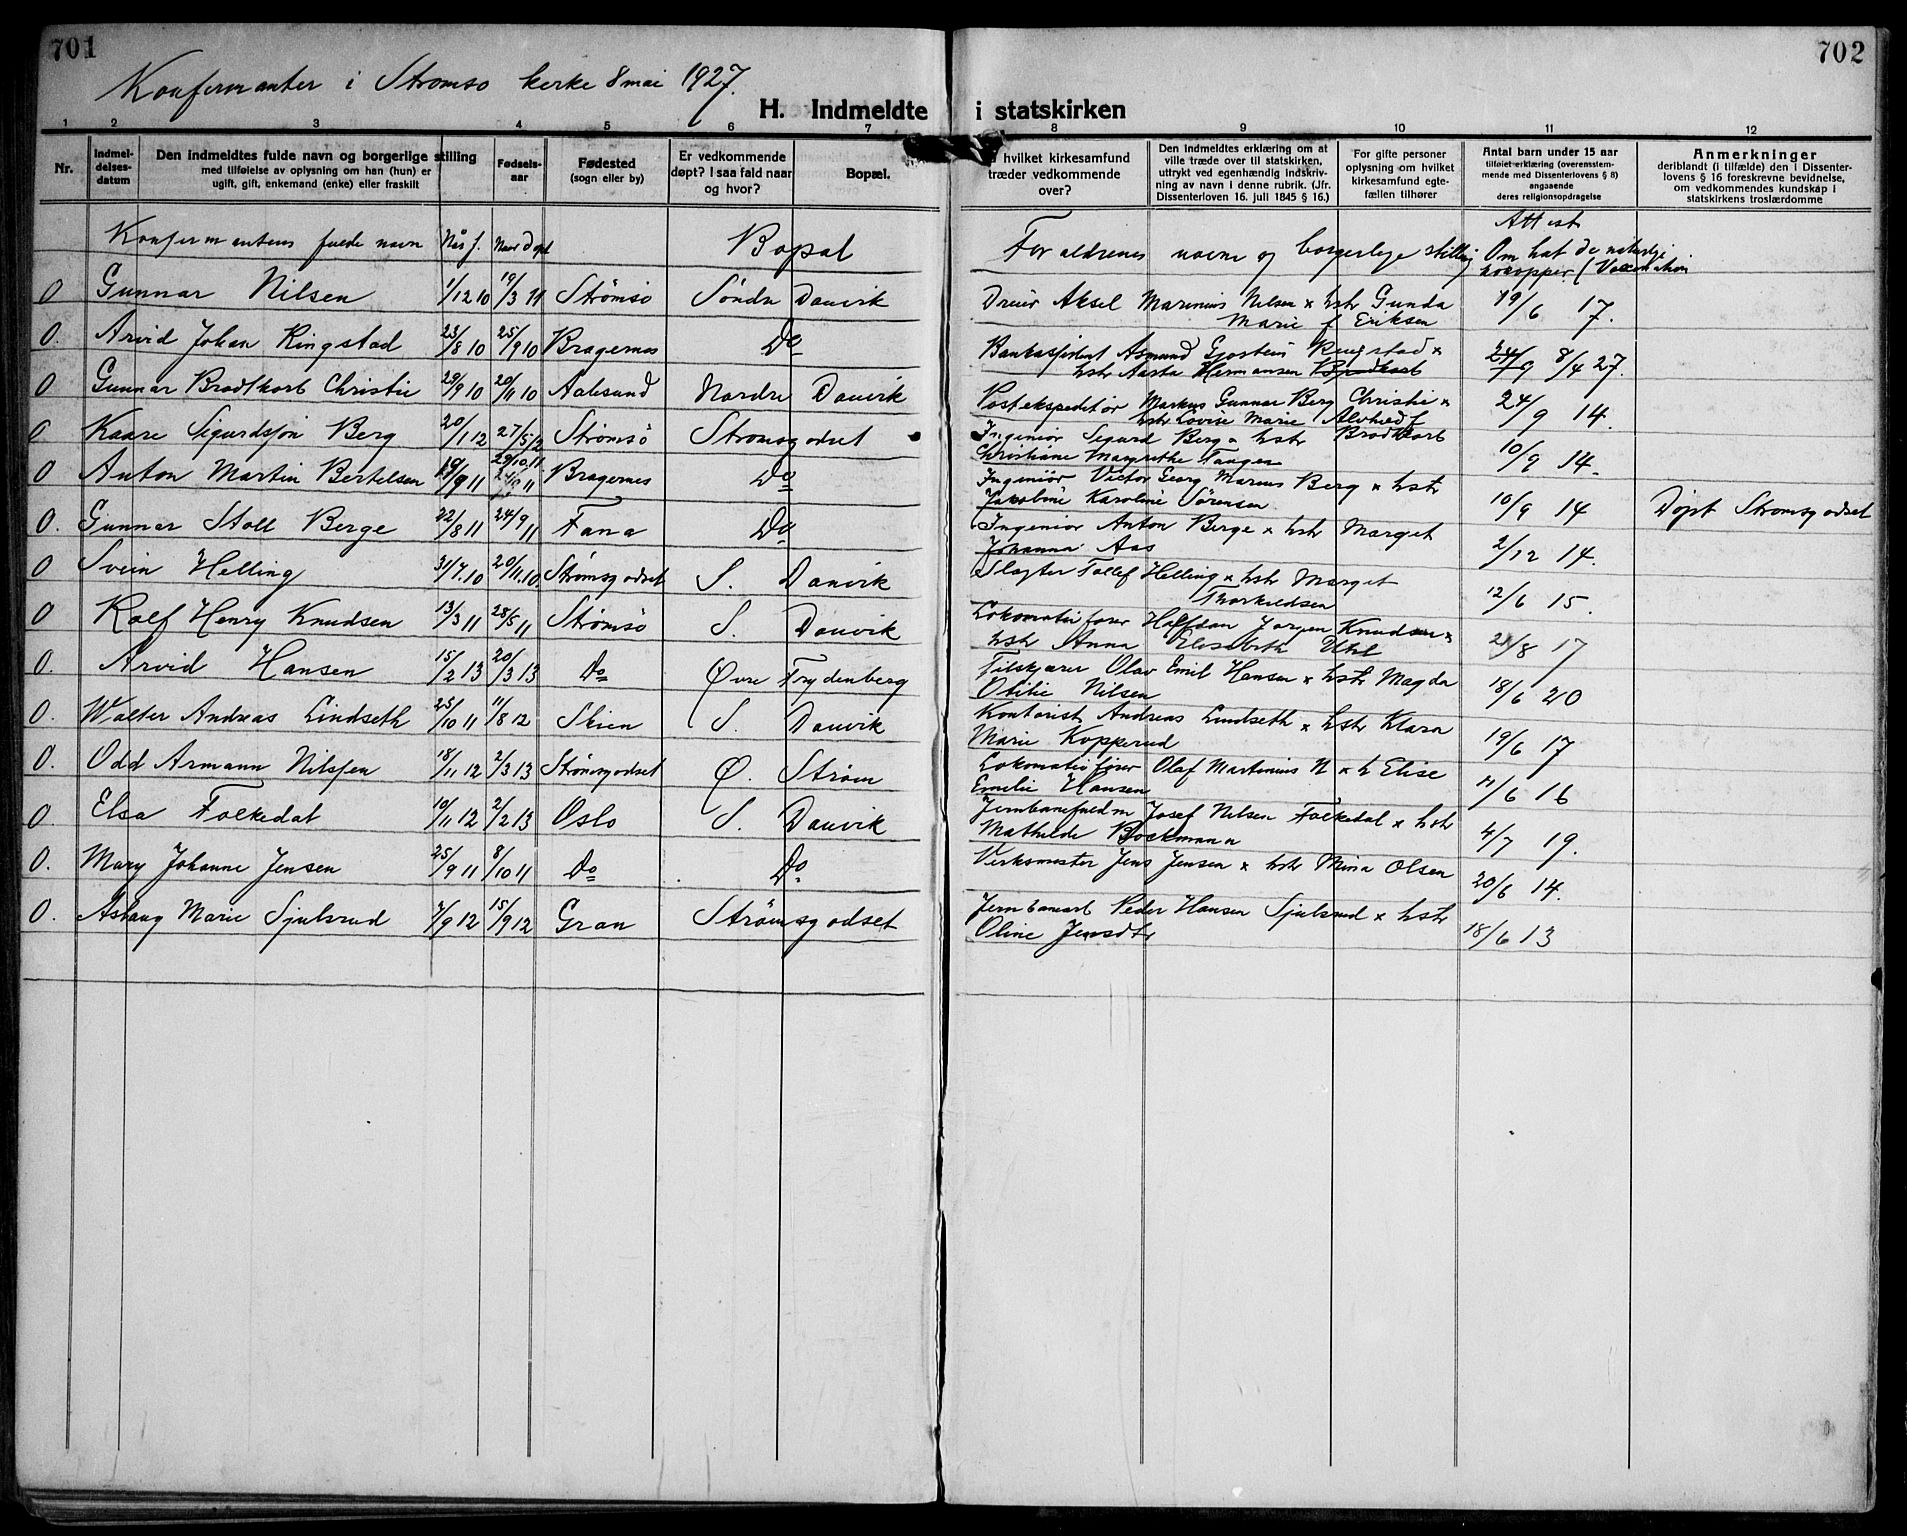 701
702
Konfirmanter i Strømsø kirke 8 mai 1927.
H. Indmeldte i statskirken
1 2 3 4 5 6 7 8 9 10 11 12
Nr.
Indmel-
delses-
datum
Den indmeldtes fulde navn og borgerlige stilling
med tilføielse av oplysning om han (hun) er
ugift, gift, enkemand (enke) eller fraskilt
Fødsels-
aar
Fødested
(sogn eller by)
Er vedkommende
døpt? I saa fald naar
og hvor?
Bopæl.
hvilket kirkesamfund
træder vedkommende
over?
Den indmeldtes erklæring om at
ville træde over til statskirken,
uttrykt ved egenhændig indskriv-
ning av navn i denne rubrik. (Jfr.
Dissenterloven 16. juli 1845 § 16.)
For gifte personer
oplysning om hvilket
kirkesamfund egte-
fællen tilhører
Antal barn under 15 aar
tilføiet erklæring (overensstem-
mende med Dissenterlovens § 8)
angaaende
deres religionsopdragelse
Anmerkninger
deriblandt (i tilfælde) den i Dissenter-
lovens § 16 foreskrevne bevidnelse,
om vedkommendes kundskap i
statskirkens troslærdomme
Konfirmantens fulde navn Når f. Naar døpt Bopæl
Foraldrenes navne og borgerlige stilling
Attest
Om hat de naturlige
kokopper (Vaccination
0 Gunnar Nilsen 1/12 10 19/3 11 Strømsø Søndre Danvik
Dreier Aksel Marinius Nilsen x hstr Gunda
Marie f Eriksen 19/6 17.
0. Arvid Johan Ringstad 23/8 10 25/9 10 Bragernes Do
Ringstad x
hstr Aasta Hermansen 24/9 8/4 27.
0 Gunnar Brodtkorb Christie 29/9 10 20/11 10 Aalesund Nordre Danvik
Postekspeditør Markus Gunnar Berg Christie x
hstr Lovise Marie Alvhed f
Brodtkorb 24/9 14.
0 Kaare Sigurdssøn Berg 20/1 12 27/5 12 Strømsø Strømsgodset
Ingeniør Sigurd Berg x hstr
Christiane Margrethe Tangen 10/9 14.
0 Anton Martin Bertelsen 19/9 11 29/10 11 Bragernes Do
Ingeniør Victor Georg Marius Berg x hstr
Jakobine Karoline Sørensen 10/9 14 Døpt Strømsgodset
0. Gunnar Stoll Berge 22/8 11 24/9 11 Fana Do
Ingeniør Anton Berge x hstr Marget
Johanna Aas 2/12 14.
0 Svein Helling 31/7.10 20/11.10 Strømsgodset S. Danvik
Slagter Tollef Helling x hstr Marget
Thorkildsen 12/6 15.
0 Rolf Henry Knudsen 13/3 11 28/5 11 Strømsø S. Danvik
Lokomotivfører Halfdan Jørgen Knudsen x
hstr Anna Elisabeth 21/8 17
0. Arvid Hansen 15/2 13 20/3 13 Do Øvre Frydenberg
Tilskjærer Olav Emil Hansen x hstr Magda
Otilie Nilsen 18/6 20
0. Walter Andreas Lindseth 25/10 11 11/8 12 Skien S. Danvik
Kontorist Andreas Lindseth x hstr Klara
Marie Kopperud 19/6 17
0. Odd Armann Nilssen 18/11 12 2/3 13 Strømsgodset Ø. Strøm
Lokomotivfører Olaf Martinius N x h Elise
Emilie Hansen 11/6 16
0. Elsa Folkedal 10/11 12 2/2 13 Oslo S. Danvik
Jernbanefuldm Josef Nilsen Folkedal x hstr
Mathilde Bockmann 4/7 19.
0. Mary Johanne Jensen 25/9 11 8/10 11 Do Do
Verksmester Jens Jensen x hstr Mina Olsen 20/6 14.
0. Aslaug Marie Sjulsrud 7/9 12 15/9 12 Gran Strømsgodset
Jernbanearb Peder Hansen Sjulsrud x hstr
Oline Jensdtr 18/6 13